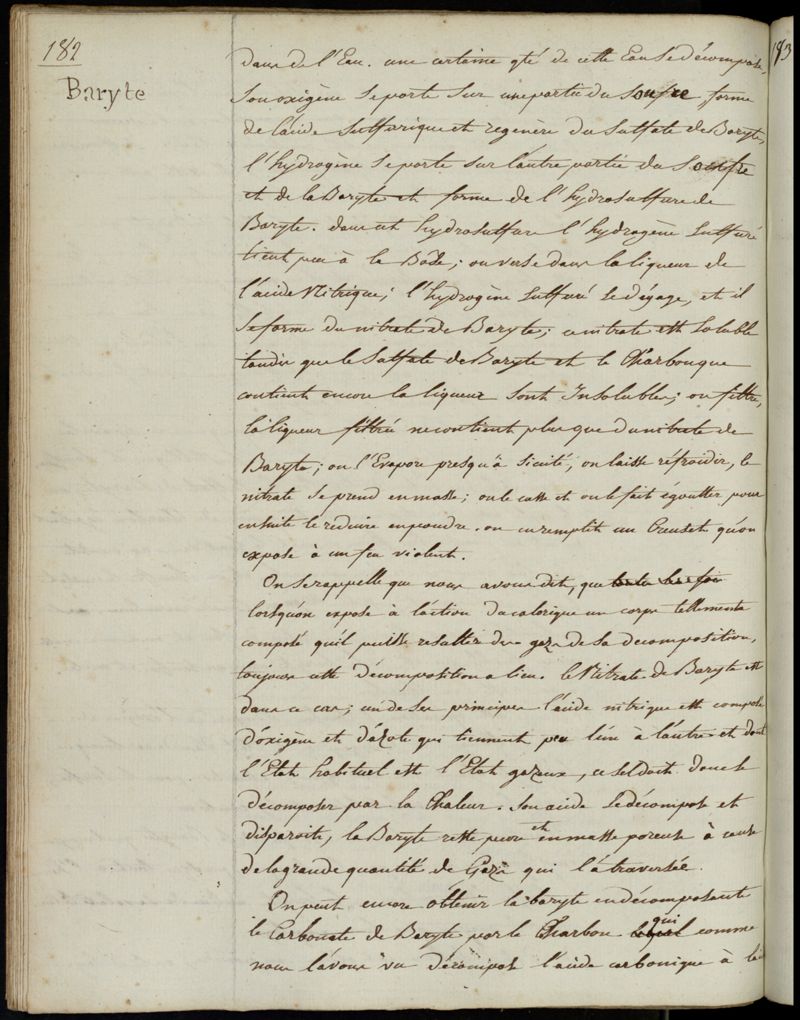 182
Baryte
dans de l'Eau. une certaine qté de cette Eau se décompose,
Son oxigène Se porte Sur une partie du Soufre, forme
de l'acide Sulfurique et regenère du Sulfate de Baryte,
l'hydrogène Se porte Sur l'autre partie du Soufre
et de la Baryte et forme de l'hydrosulfure de
Baryte. dans cet hydrosulfure l'hydrogène Sulfuré
tient peu à la Base; on verse dans la liqueur de
l'acide Nitrique; l'hydrogène Sulfuré Se dégage, et il
Se forme du nitrate de Baryte; ce nitrate est Soluble
tandis que le Sulfate de Baryte et le Charbon que
contient encore la liqueur Sont Insolubles; on filtre,
la liqueur filtrée ne contient plus que du nitrate de
Baryte; on l'Evapore presqu'à Siccité, on laisse réfroidir, le
nitrate Se prend en masse; on le casse et on le fait égoutter pour
ensuite le réduire en poudre. on en remplit un Creuset qu'on
expose à un feu violent.
On Se rappelle que nous avons dit, que toutes les fois
lorsqu'on expose à l'action du calorique un corps tellement
composé qu'il puisse resulter du gaz de Sa decomposition,
toujours cette décomposition a lieu. le Nitrate de Baryte est
dans ce cas; un de Ses principes l'acide nitrique est composé
d'oxigène et d'azote qui tiennent peu l'un à l'autre et dont
l'Etat habituel est l'Etat gazeux, ce Sel doit donc Se
décomposer par la Chaleur. Son acide Se décompose et
disparoit, la Baryte reste pure et en masse poreuse à cause
de la grande quantité de Gaz qui l'a traversée.
On peut encore obtenir la baryte en décomposant
le Carbonate de Baryte par le Charbon lequel qui comme
nous l'avons vu décompose l'acide carbonique à
183